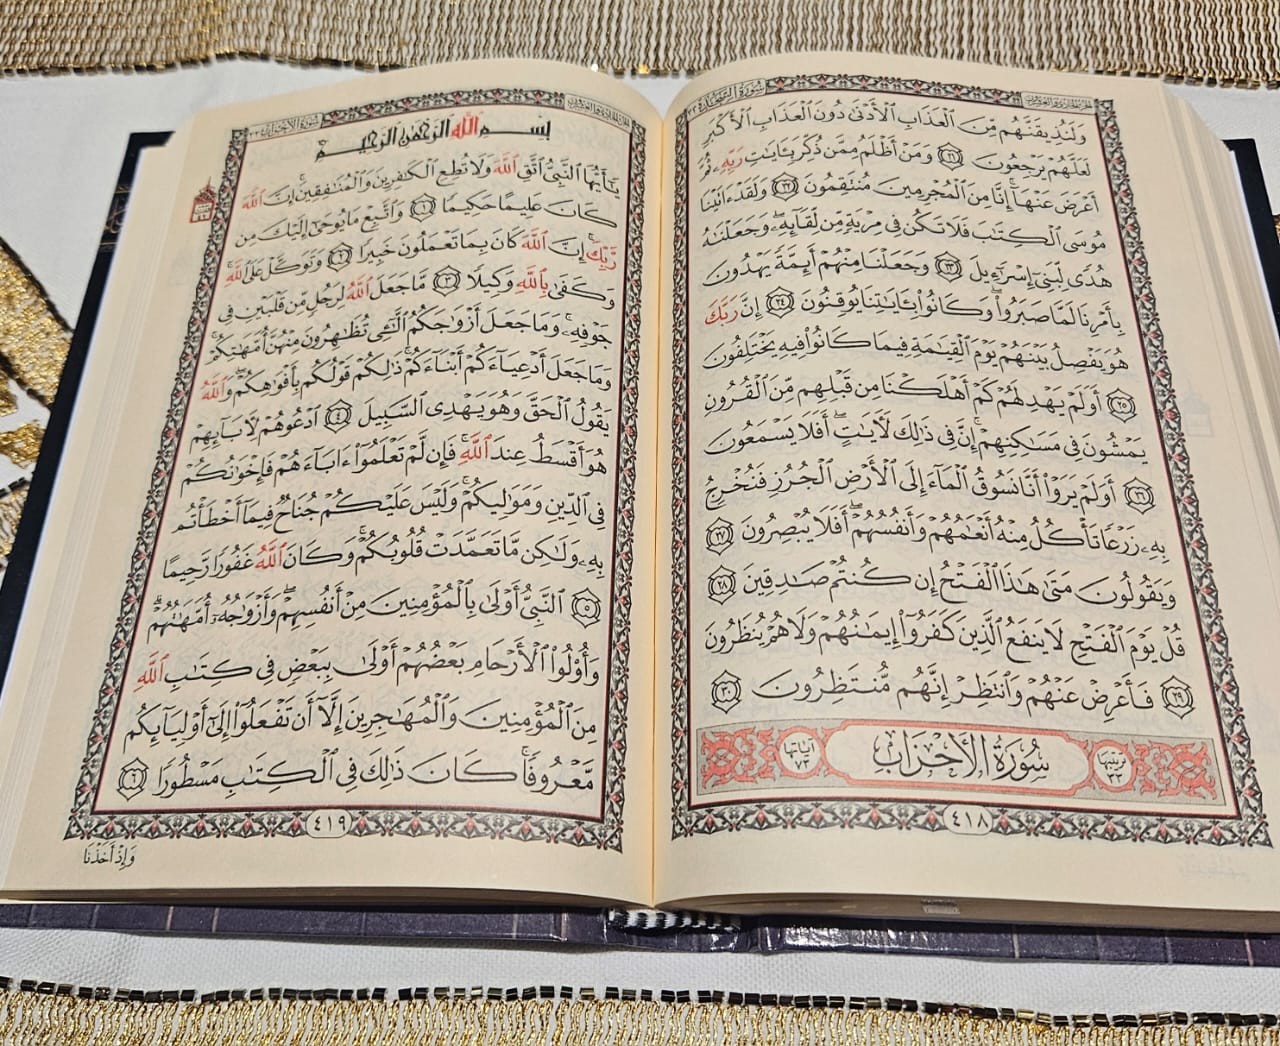 الجزء الحادي والعشرون
سُورَةُ السَّجْدَةِ ٣٢
وَلَنُذِيقَنَّهُم مِّنَ ٱلْعَذَابِ ٱلْأَدْنَىٰ دُونَ ٱلْعَذَابِ ٱلْأَكْبَرِ
لَعَلَّهُمْ يَرْجِعُونَ ٢١ وَمَنْ أَظْلَمُ مِمَّن ذُكِّرَ بِـَٔايَـٰتِ رَبِّهِۦ ثُمَّ
أَعْرَضَ عَنْهَآ ۚ إِنَّا مِنَ ٱلْمُجْرِمِينَ مُنتَقِمُونَ ٢٢ وَلَقَدْ ءَاتَيْنَا
مُوسَى ٱلْكِتَـٰبَ فَلَا تَكُن فِى مِرْيَةٍ مِّن لِّقَآئِهِۦ ۖ وَجَعَلْنَـٰهُ
هُدًى لِّبَنِىٓ إِسْرَٰٓءِيلَ ٢٣ وَجَعَلْنَا مِنْهُمْ أَئِمَّةً يَهْدُونَ
بِأَمْرِنَا لَمَّا صَبَرُوا۟ ۖ وَكَانُوا۟ بِـَٔايَـٰتِنَا يُوقِنُونَ ٢٤ إِنَّ رَبَّكَ
هُوَ يَفْصِلُ بَيْنَهُمْ يَوْمَ ٱلْقِيَـٰمَةِ فِيمَا كَانُوا۟ فِيهِ يَخْتَلِفُونَ
٢٥ أَوَلَمْ يَهْدِ لَهُمْ كَمْ أَهْلَكْنَا مِن قَبْلِهِم مِّنَ ٱلْقُرُونِ
يَمْشُونَ فِى مَسَـٰكِنِهِمْ ۚ إِنَّ فِى ذَٰلِكَ لَـَٔايَـٰتٍ ۖ أَفَلَا يَسْمَعُونَ
٢٦ أَوَلَمْ يَرَوْا۟ أَنَّا نَسُوقُ ٱلْمَآءَ إِلَى ٱلْأَرْضِ ٱلْجُرُزِ فَنُخْرِجُ
بِهِۦ زَرْعًا تَأْكُلُ مِنْهُ أَنْعَـٰمُهُمْ وَأَنفُسُهُمْ ۖ أَفَلَا يُبْصِرُونَ ٢٧
وَيَقُولُونَ مَتَىٰ هَـٰذَا ٱلْفَتْحُ إِن كُنتُمْ صَـٰدِقِينَ ٢٨
قُلْ يَوْمَ ٱلْفَتْحِ لَا يَنفَعُ ٱلَّذِينَ كَفَرُوٓا۟ إِيمَـٰنُهُمْ وَلَا هُمْ يُنظَرُونَ
٢٩ فَأَعْرِضْ عَنْهُمْ وَٱنتَظِرْ إِنَّهُم مُّنتَظِرُونَ ٣٠
ترتيبها ٣٣ سُورَةُ الأَحْزَابِ آياتها ٧٣
٤١٨
الجزء الحادي والعشرون
سُورَةُ الأَحْزَابِ ٣٣
بِسْمِ ٱللَّهِ ٱلرَّحْمَـٰنِ ٱلرَّحِيمِ
يَـٰٓأَيُّهَا ٱلنَّبِىُّ ٱتَّقِ ٱللَّهَ وَلَا تُطِعِ ٱلْكَـٰفِرِينَ وَٱلْمُنَـٰفِقِينَ ۗ إِنَّ ٱللَّهَ
كَانَ عَلِيمًا حَكِيمًا ١ وَٱتَّبِعْ مَا يُوحَىٰٓ إِلَيْكَ مِن
رَّبِّكَ ۚ إِنَّ ٱللَّهَ كَانَ بِمَا تَعْمَلُونَ خَبِيرًا ٢ وَتَوَكَّلْ عَلَى ٱللَّهِ ۚ
وَكَفَىٰ بِٱللَّهِ وَكِيلًا ٣ مَّا جَعَلَ ٱللَّهُ لِرَجُلٍ مِّن قَلْبَيْنِ فِى
جَوْفِهِۦ ۚ وَمَا جَعَلَ أَزْوَٰجَكُمُ ٱلَّـٰٓـِٔى تُظَـٰهِرُونَ مِنْهُنَّ أُمَّهَـٰتِكُمْ ۚ
وَمَا جَعَلَ أَدْعِيَآءَكُمْ أَبْنَآءَكُمْ ۚ ذَٰلِكُمْ قَوْلُكُم بِأَفْوَٰهِكُمْ ۖ وَٱللَّهُ
يَقُولُ ٱلْحَقَّ وَهُوَ يَهْدِى ٱلسَّبِيلَ ٤ ٱدْعُوهُمْ لِـَٔابَآئِهِمْ
هُوَ أَقْسَطُ عِندَ ٱللَّهِ ۚ فَإِن لَّمْ تَعْلَمُوٓا۟ ءَابَآءَهُمْ فَإِخْوَٰنُكُمْ
فِى ٱلدِّينِ وَمَوَٰلِيكُمْ ۚ وَلَيْسَ عَلَيْكُمْ جُنَاحٌ فِيمَآ أَخْطَأْتُم
بِهِۦ وَلَـٰكِن مَّا تَعَمَّدَتْ قُلُوبُكُمْ ۚ وَكَانَ ٱللَّهُ غَفُورًا رَّحِيمًا
٥ ٱلنَّبِىُّ أَوْلَىٰ بِٱلْمُؤْمِنِينَ مِنْ أَنفُسِهِمْ ۖ وَأَزْوَٰجُهُۥٓ أُمَّهَـٰتُهُمْ ۗ
وَأُو۟لُوا۟ ٱلْأَرْحَامِ بَعْضُهُمْ أَوْلَىٰ بِبَعْضٍ فِى كِتَـٰبِ ٱللَّهِ
مِنَ ٱلْمُؤْمِنِينَ وَٱلْمُهَـٰجِرِينَ إِلَّآ أَن تَفْعَلُوٓا۟ إِلَىٰٓ أَوْلِيَآئِكُم
مَّعْرُوفًا ۚ كَانَ ذَٰلِكَ فِى ٱلْكِتَـٰبِ مَسْطُورًا ٦
٤١٩
وَإِذْ أَخَذْنَا